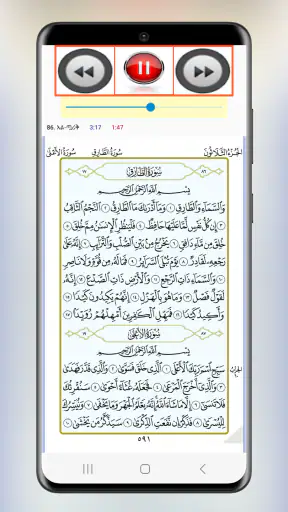 86. አል-ጣሪቅ 3:17 1:47
الجزء الثلاثون سورة الطارق سورة الأعلى
٨٦ سُورَةُ الطَّارِقِ ١٧
بِسْمِ ٱللَّهِ ٱلرَّحْمَٰنِ ٱلرَّحِيمِ
وَٱلسَّمَآءِ وَٱلطَّارِقِ ١ وَمَآ أَدْرَىٰكَ مَا ٱلطَّارِقُ ٢ ٱلنَّجْمُ ٱلثَّاقِبُ
٣ إِن كُلُّ نَفْسٍ لَّمَّا عَلَيْهَا حَافِظٌ ٤ فَلْيَنظُرِ ٱلْإِنسَٰنُ مِمَّ خُلِقَ ٥
خُلِقَ مِن مَّآءٍ دَافِقٍ ٦ يَخْرُجُ مِنۢ بَيْنِ ٱلصُّلْبِ وَٱلتَّرَآئِبِ ٧ إِنَّهُۥ عَلَىٰ
رَجْعِهِۦ لَقَادِرٌ ٨ يَوْمَ تُبْلَى ٱلسَّرَآئِرُ ٩ فَمَا لَهُۥ مِن قُوَّةٍ وَلَا نَاصِرٍ
١٠ وَٱلسَّمَآءِ ذَاتِ ٱلرَّجْعِ ١١ وَٱلْأَرْضِ ذَاتِ ٱلصَّدْعِ ١٢ إِنَّهُۥ
لَقَوْلٌ فَصْلٌ ١٣ وَمَا هُوَ بِٱلْهَزْلِ ١٤ إِنَّهُمْ يَكِيدُونَ كَيْدًا ١٥
وَأَكِيدُ كَيْدًا ١٦ فَمَهِّلِ ٱلْكَٰفِرِينَ أَمْهِلْهُمْ رُوَيْدًۢا ١٧
٨٧ سُورَةُ الأَعْلَىٰ ١٩
بِسْمِ ٱللَّهِ ٱلرَّحْمَٰنِ ٱلرَّحِيمِ
سَبِّحِ ٱسْمَ رَبِّكَ ٱلْأَعْلَى ١ ٱلَّذِى خَلَقَ فَسَوَّىٰ ٢ وَٱلَّذِى قَدَّرَ فَهَدَىٰ
٣ وَٱلَّذِىٓ أَخْرَجَ ٱلْمَرْعَىٰ ٤ فَجَعَلَهُۥ غُثَآءً أَحْوَىٰ ٥ سَنُقْرِئُكَ
فَلَا تَنسَىٰٓ ٦ إِلَّا مَا شَآءَ ٱللَّهُ إِنَّهُۥ يَعْلَمُ ٱلْجَهْرَ وَمَا يَخْفَىٰ ٧ وَنُيَسِّرُكَ
لِلْيُسْرَىٰ ٨ فَذَكِّرْ إِن نَّفَعَتِ ٱلذِّكْرَىٰ ٩ سَيَذَّكَّرُ مَن يَخْشَىٰ ١٠
٥٩١